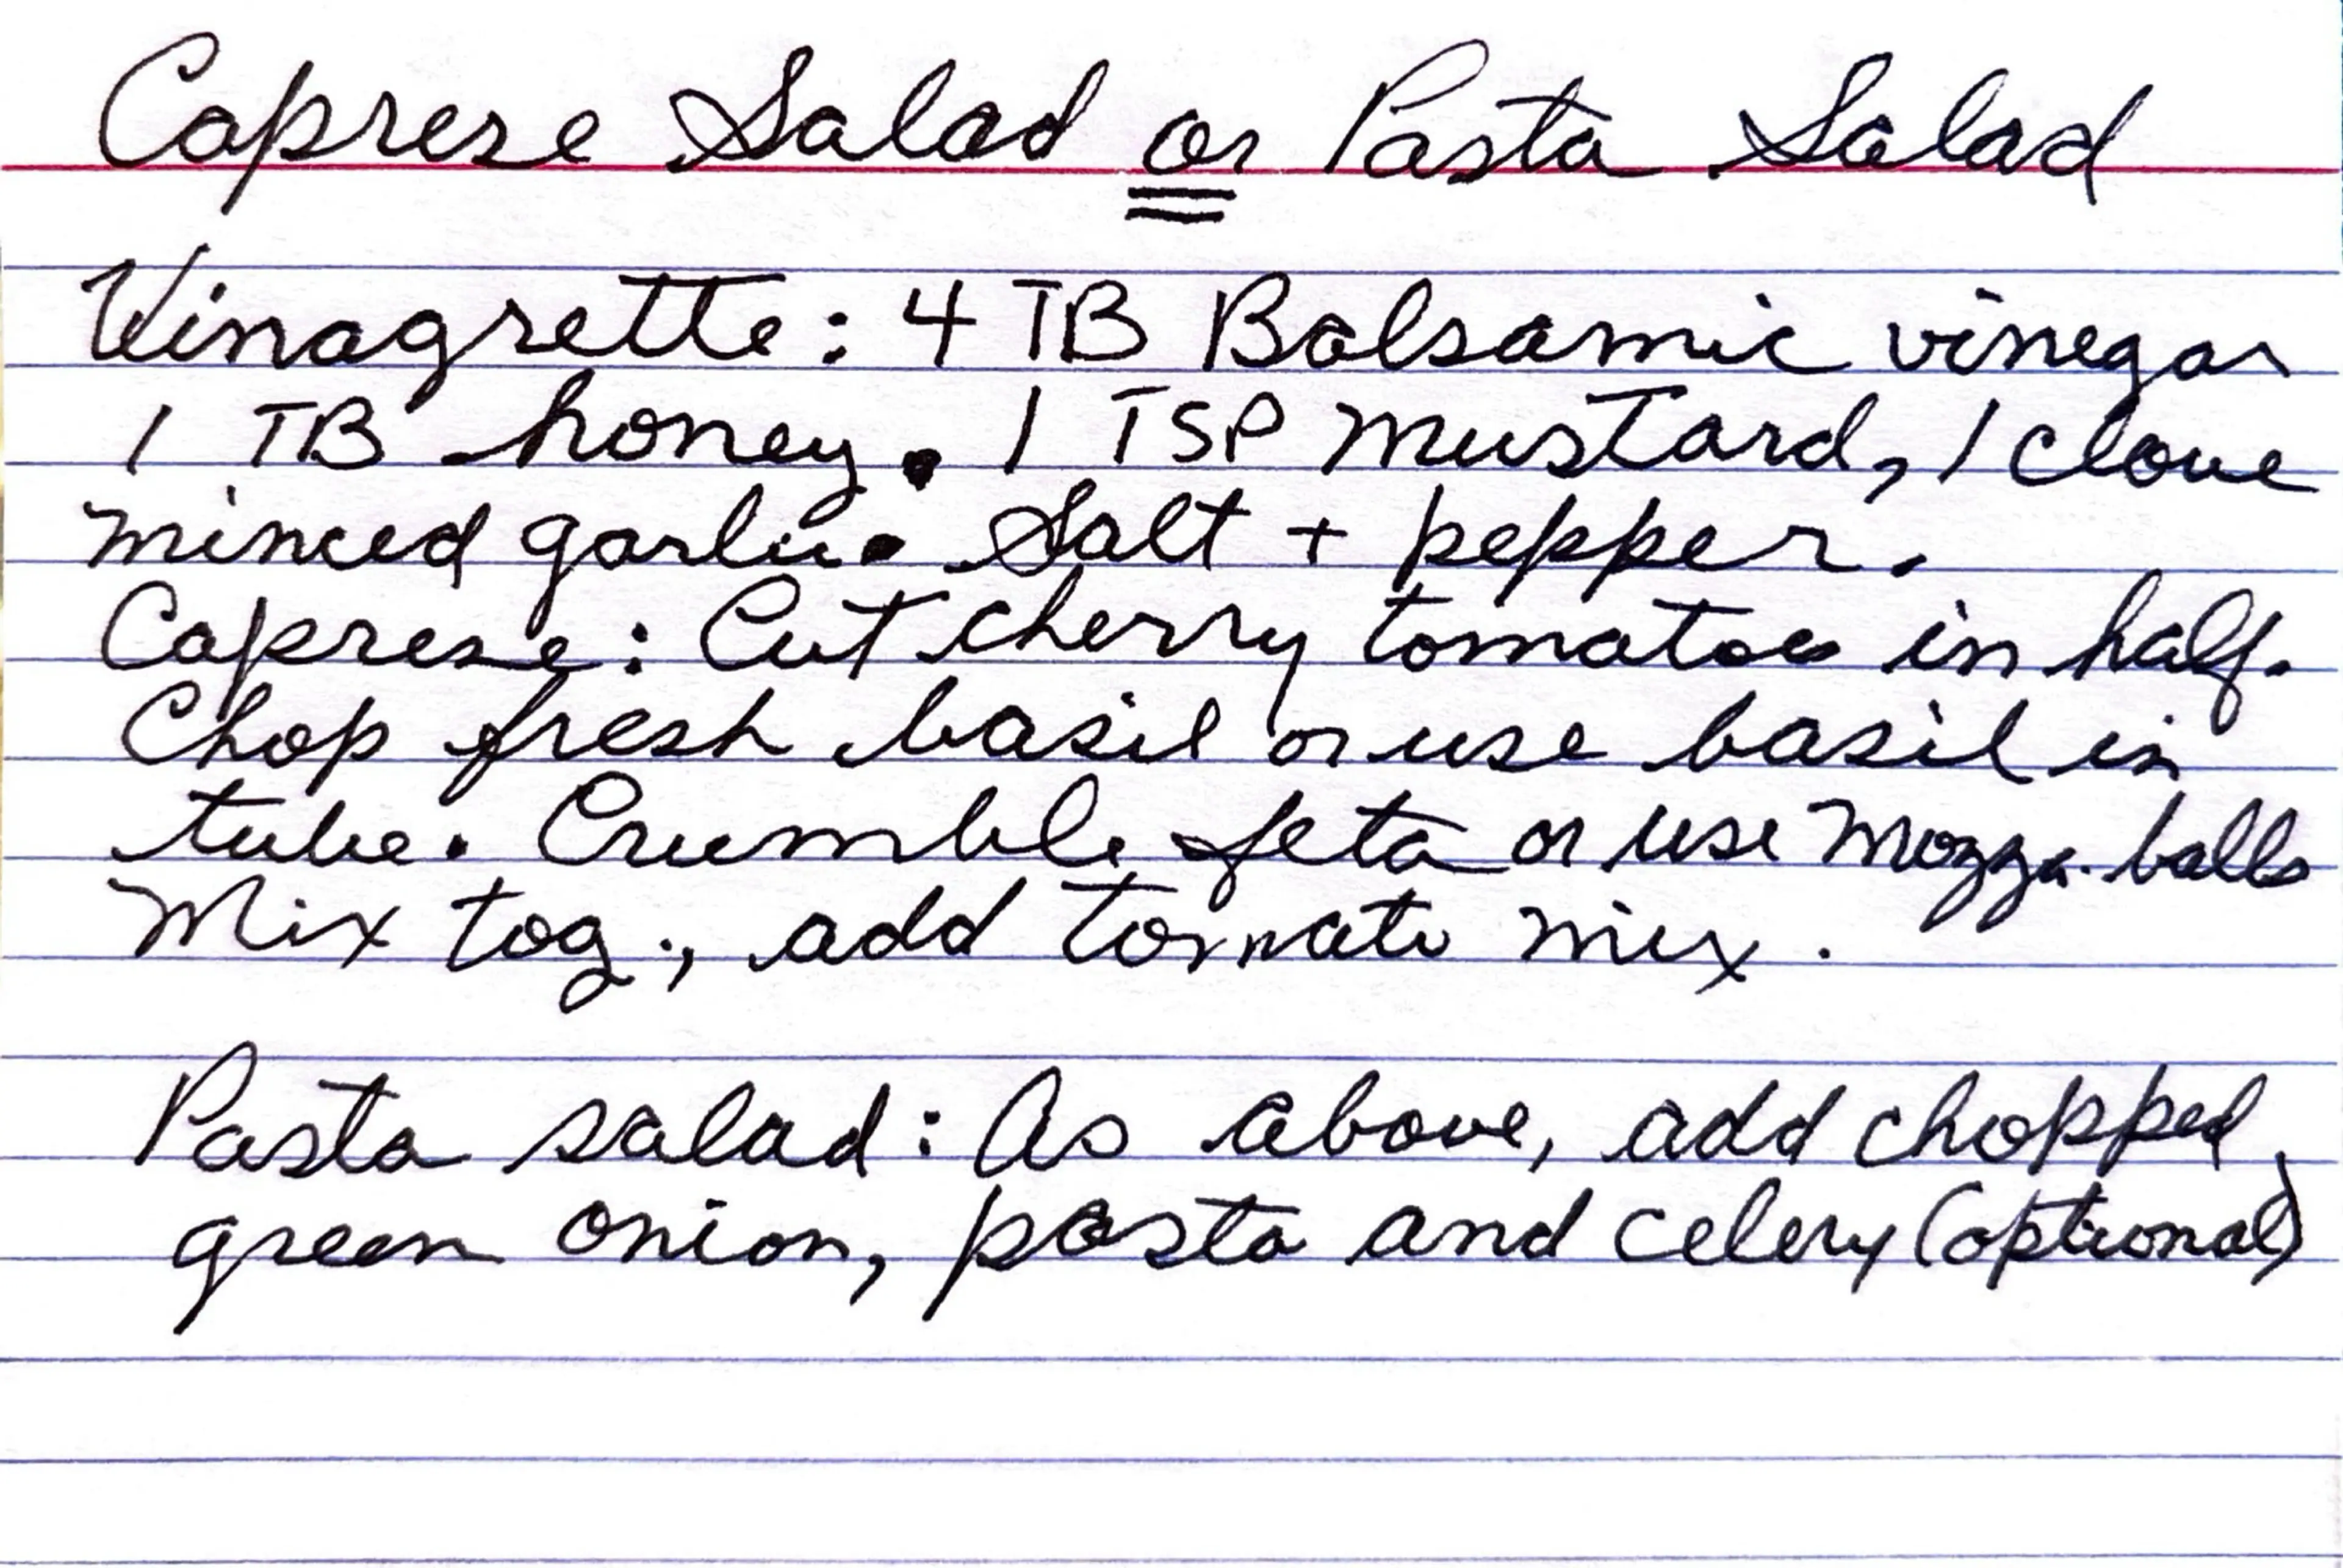 Caprese Salad or Pasta Salad
Vinagrette: 4 TB Balsamic vinegar
1 TB honey. 1 TSP mustard, 1 clove
minced garlic. Salt + pepper.
Caprese: Cut cherry tomatoes in half.
Chop fresh basil or use basil in
tube. Crumble feta or use Mozza. balls
Mix tog., add tomato mix.
Pasta salad: As above, add chopped
green onion, pasta and celery (optional)